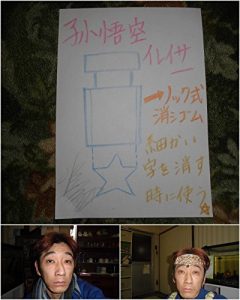 孫悟空
イレイサー
→ノック式
消シゴム
細かい
字を消す
時に使う